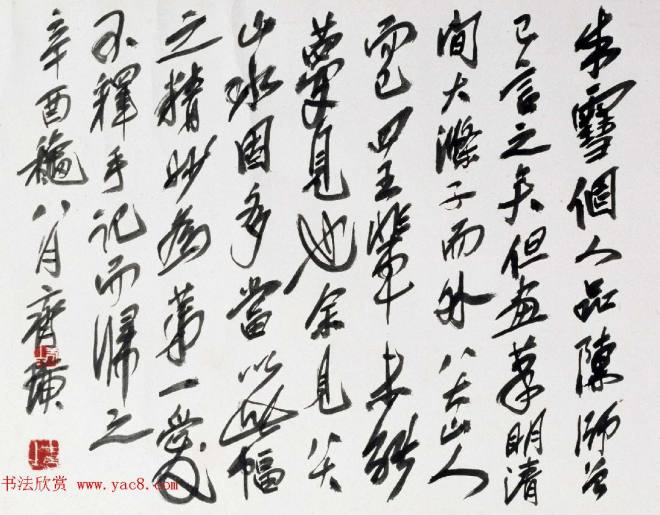 朱雪個人品陳師曾
已言之矣但畫筆明清
間大滌子而外八大山人
而已四王輩未能
夢見也余見八大
山水固多當以此幅
之精妙為第一愛
不釋手記而歸之
辛酉秋八月齊璜
书法欣赏 www.yac8.com